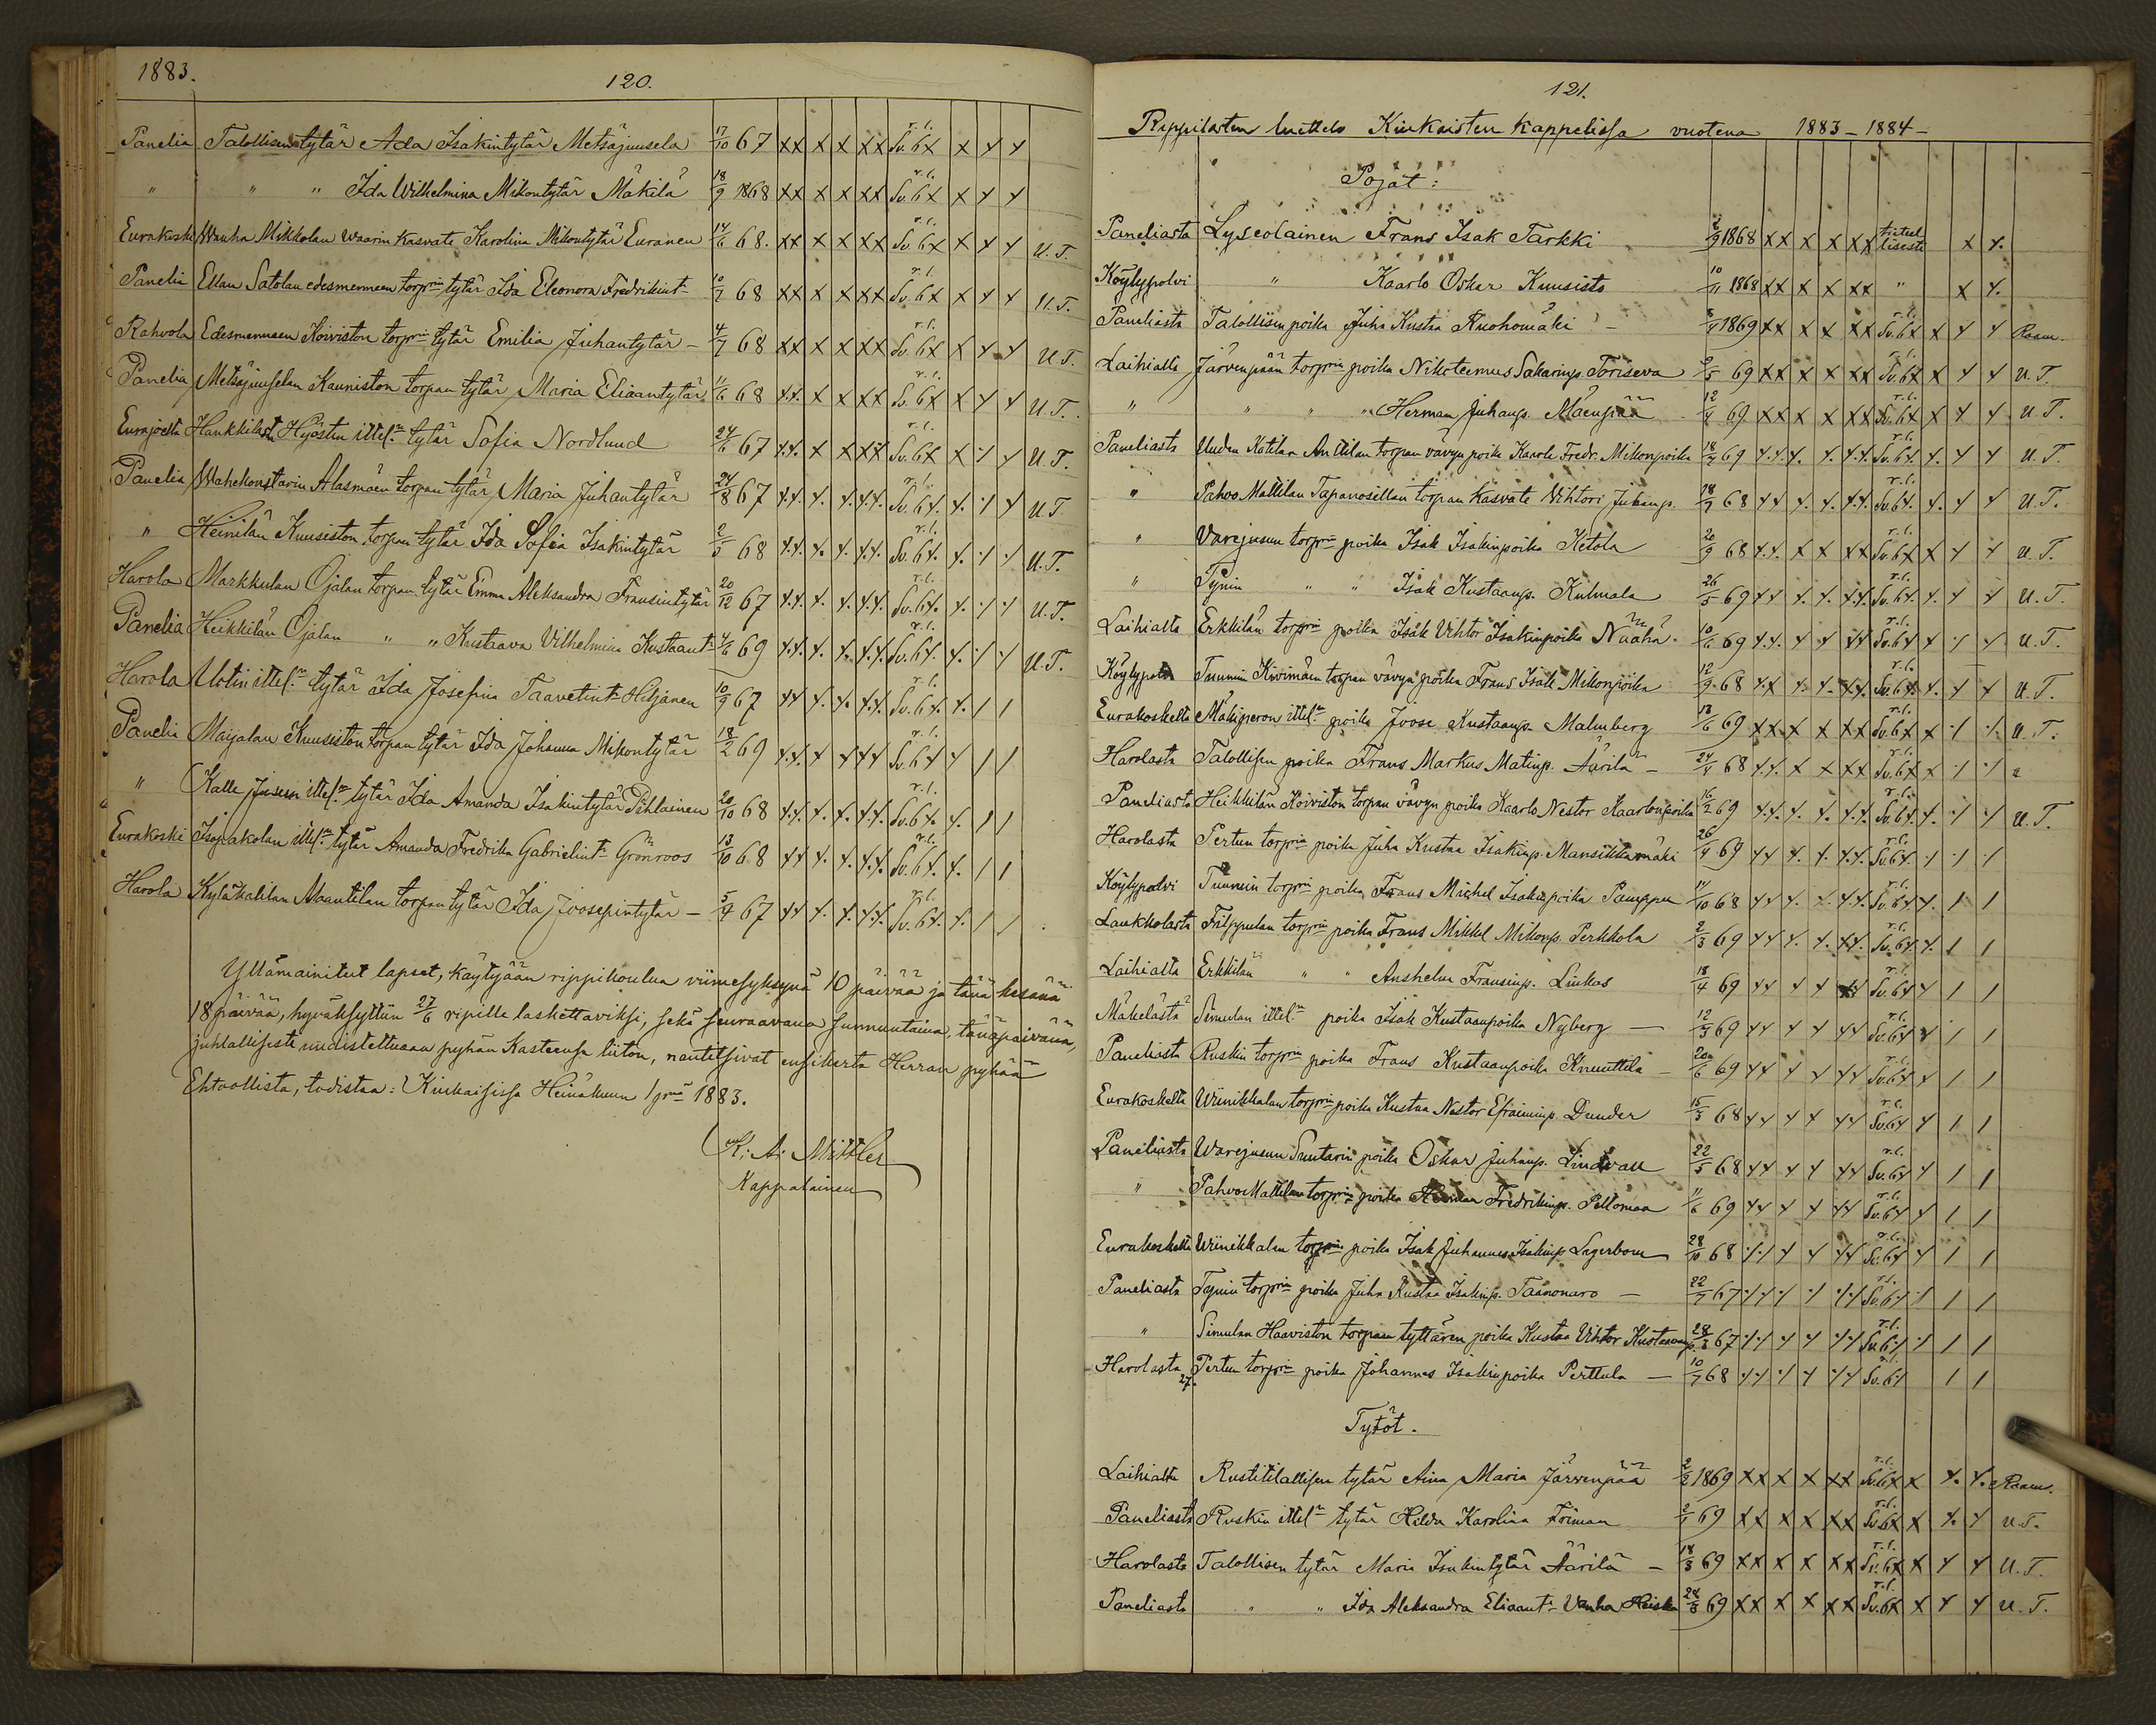 1883.
120.
Panelia Talollisen tytär Ada Isakintytär Metsäjuusela 17/10 67 xx x x xx r.l. Sv.6x x x x
" " " Ida Wilhelmina Mikontytär Mäkilä 18/9 1868 xx x x xx r.l. Sv.6x x x x
Eurakoski Wanha Mikkolan waarin kasvate Karolina Mikontytär Euranen 14/6 68. xx x x xx r.l. Sv.6x x x x U.T.
Panelia Ellan Satolan edesmenneen torprin tytär Ida Eleonora Fredrikint. 10/7 68 xx x x xx r.l. Sv.6x x x x U.T.
Rahvola Edesmenneen Koiviston torprin tytär Emilia Juhantytär – 4/7 68 xx x x xx r.l. Sv.6x x x x U.T.
Panelia Metsäjuuselan Kauniston torpan tytär Maria Eliaantytär 11/6 68 x.x. x x xx r.l. Sv.6x x x x U.T.
Eurajoelta Hankkilasta Hyöstin ittel:n tytär Sofia Nordlund 24/6 67 x.x. x x xx r.l. Sv.6x x x x U.T.
Panelia Wahekonstarin Alasmäen torpan tytär Maria Juhantytär 24/8 67 x.x. x. x. x.x. r.l. Sv.6x. x. x x U.T
" Heinilän Kuusiston torpan tytär Ida Sofia Isakintytär 2/5 68 x.x. x. x. x.x. r.l. Sv.6x. x. x x U.T.
Harola Markkulan Ojalan torpan tytär Emma Aleksandra Fransintytär 20/12 67 x.x. x. x. x.x. r.l. Sv.6x. x. x x U.T.
Panelia Heikkilän Ojalan " " Kustaava Vilhelmina Kustaant. 4/6 69 x.x. x. x. x.x. r.l. Sv.6x. x. x x U.T.
Harola Uotin ittel:n tytär Ida Josefina Taavetint. Hiljanen 10/9 67 xx x. x. x.x. r.l. Sv.6x. x. / /
Panelia Maijalan Kuusiston torpan tytär Ida Johanna Mikontytär 18/2 69 x.x. x x xx r.l. Sv.6x x / /
" Kalle Jusesin ittel:n tytär Ida Amanda Isakintytär Pihlainen 20/10 68 x.x. x. x. x.x. r.l. Sv.6x. x. / /
Eurakoski Isopakolan ittel:n tytär Amanda Fredrika Gabrielint. Grönroos 13/10 68 xx x. x. x.x. r.l. Sv.6x. x. / /
Harola Kyläkalilan Maantilan torpan tytär Ida Joosepintytär – 5/4 67 xx x. x. x.x. r.l. Sv.6x. x. / /
Yllämainitut lapset, käytyjään rippikoulua viimesyksynä 10 päivää ja tänä kesänä
18 päivää, hyväksyttiin 27/6 ripille laskettaviksi, sekä seuraavana sunnuntaina, tänäpäivänä,
juhlallisesti uudistettuaan pyhän Kasteensa liiton, nautitsivat ensikerta Herran pyhää
Ehtoollista, todistaa: Kiukaisissa Heinäkuun 1 prnä 1883.
K: A: Mittler
Kappalainen
121.
Rippilasten luettelo Kiukaisten kappelissa vuotena 1883–1884–
Pojat:
Paneliasta Lyseolainen Frans Isak Tarkki 2/9 1868 xx x x xx tietee llisesti x x.
Köylypolvi " Kaarlo Oskar Kuusisto 10/11 1868 xx x x xx " x x.
Paneliasta Talollisen poika Juha Kustaa Ruohomäki – 1869 xx x x xx r.l. Sv.6x x x x Raam.
Laihialta Järvenpään torprin poika Nikoteemus Sakarinp. Toriseva 69 xx x x xx r.l. Sv.6x x x x U.T.
" " " " Herman Juhanp. Mäenpää 12/4 69 xx x x xx r.l. Sv.6x x x x U.T.
Paneliasta Uuden Katilan Anttilan torpan vävyn poika Kaarle Fredr. Mikonpoika 18/4 69 x.x. x. x. x.x. r.l. Sv.6x. x. x x U.T.
" Pahvo Mattilan Tapanosillan torpan kasvate Vihtori Juhanp. 28/7 68 xx x. x. x.x. r.l. Sv.6x. x. x x U.T.
" Varejusun torprin poika Isak Isakinpoika Ketola 20/9 68 x.x. x x xx r.l. Sv.6x x x x U.T.
" Tynin " " Isak Kustaanp. Kulmala 26/5 69 xx x. x. x.x. r.l. Sv.6x. x. x x U.T.
Laihialta Erkkilän torprin poika Isak Vihtor Isakinpoika Näähä. 10/6 69 x.x. x x xx r.l. Sv.6x x x x U.T.
Köylypolvi Tuumin Kivimäen torpan vävyn poika Frans Isak Mikonpoika 12/9 68 x.x x. x. x.x. r.l. Sv.6x. x. x x U.T.
Eurakoskelta Mäkiperon ittel:n poika Joose Kustaanp. Malmberg 13/6 69 xx x x xx r.l. Sv.6x x x x. U.T.
Harolasta Talollisen poika Frans Markus Matinp. Äärilä – 24/4 68 x.x. x x xx r.l. Sv.6x x x x
Paneliasta Heikkilän Koiviston torpan vävyn poika Kaarlo Nestor Kaarlonpoika 16/2 69 x.x. x. x. x.x. r.l. Sv.6x. x. x x U.T.
Harolasta Pertun torprin poika Juha Kustaa Isakinp. Mansikkamäki 26/4 69 xx x. x. x.x. r.l. Sv.6x. x x x
Köylypolvi Tuumin torprin poika Frans Michel Isakinpoika Pamppu 14/10 68 xx x. x. x.x. r.l. Sv.6x x. / /
Laukkolasta Filppulan torprin poika Frans Mikkel Mikonp. Perkkola 2/3 69 xx x. x. xx. r.l. Sv.6x. x. / /
Laihialta Erkkilän " " Anshelm Fransinp. Linkas 18/4 69 xx x x xx r.l. Sv.6x x / /
Mäkelästä Simulan ittel:n poika Isak Kustaanpoika Nyberg – 12/3 69 xx x x xx r.l. Sv.6x x / /
Paneliasta Ruskin torprin poika Frans Kustaanpoika Knuuttila – 20/6 69 xx x x xx r.l. Sv.6x x / /
Eurakoskelta Wiinikkalan torprin poika Kustaa Nestor Efraiminp. Dunder 15/3 68 xx x x xx r.l. Sv.6x x / /
Paneliasta Warejusun Suutarin poika Oskar Juhanp. Lindvall 22/5 68 xx x x xx r.l. Sv.6x x / /
" Pahvo Mattilan torprin poika Herman Fredrikinp. Peltomaa 11/6 69 xx x x xx r.l. Sv.6x x / /
Eurakoskelta Wiinikkalan torprin poika Isak Juhannes Isakinp. Lagerbom 28/10 68 xx x x xx r.l. Sv.6x x / /
Paneliasta Tynin torprin poika Juha Kustaa Isakinp. Taanonaro – 22/7 67 xx x x xx r.l. Sv.6x x / /
" Simulan Haaviston torpan tyttären poika Kustaa Vihtor Kustaavanp. 28/3 67 xx x x xx r.l. Sv.6x x / /
Harolasta Pertun torprin poika Johannes Isakinpoika Perttula – 10/7 68 xx x x xx r.l. Sv.6x / /
27.
Tytöt.
Laihialta Rustitilallisen tytär Aina Maria Järvenpää 2/2 1869 xx x x xx r.l. Sv.6x x x. x. Raam.
Paneliasta Ruskin ittel:n tytär Hilda Karolina Friman 2/1 69 xx x x xx r.l. Sv.6x x x. x U.T.
Harolasta Talollisen tytär Maria Isakintytär Äärilä – 18/3 69 xx x x xx r.l. Sv.6x x x x U.T.
Paneliasta " " Ida Aleksandra Eliaant. Vanha Heiska 24/3 69 xx x x xx r.l. Sv.6x x x x U.T.